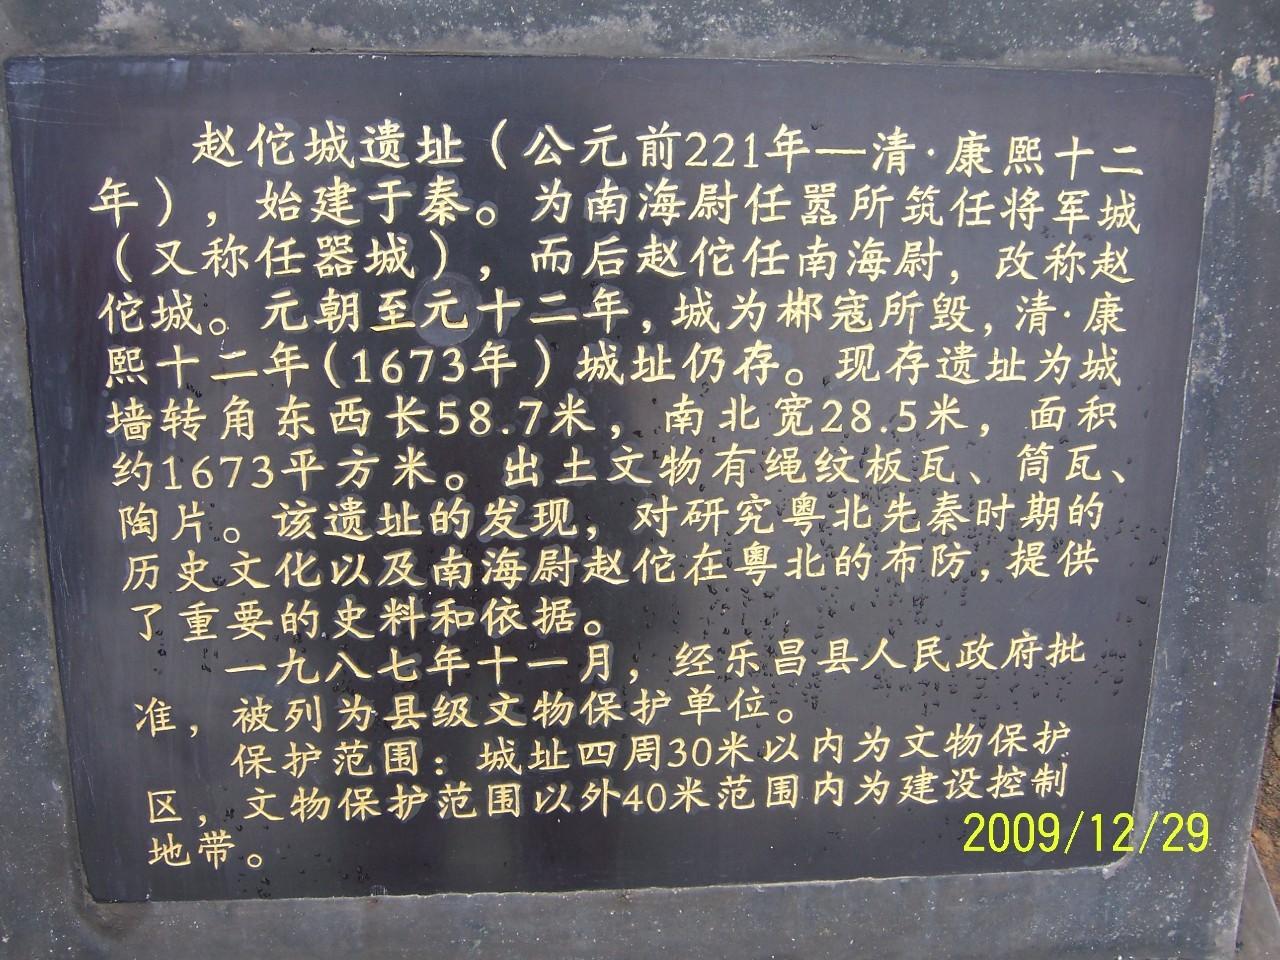 赵佗城遗址（公元前221年—清·康熙十二
年），始建于秦。为南海尉任嚣所筑任将军城
（又称任嚣城），而后赵佗任南海尉，改称赵
佗城。元朝至元十二年，城为郴寇所毁，清·康
熙十二年（1673年）城址仍存。现存遗址为城
墙转角东西长58.7米，南北宽28.5米，面积
约1673平方米。出土文物有绳纹板瓦、筒瓦、
陶片。该遗址的发现，对研究粤北先秦时期的
历史文化以及南海尉赵佗在粤北的布防，提供
了重要的史料和依据。
一九八七年十一月，经乐昌县人民政府批
准，被列为县级文物保护单位。
保护范围：城址四周30米以内为文物保护
区，文物保护范围以外40米范围内为建设控制
地带。
2009/12/29